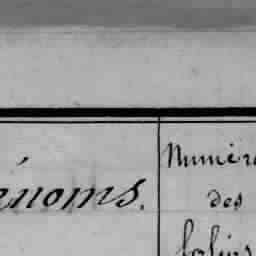 énoms.
Numéro
des
folios